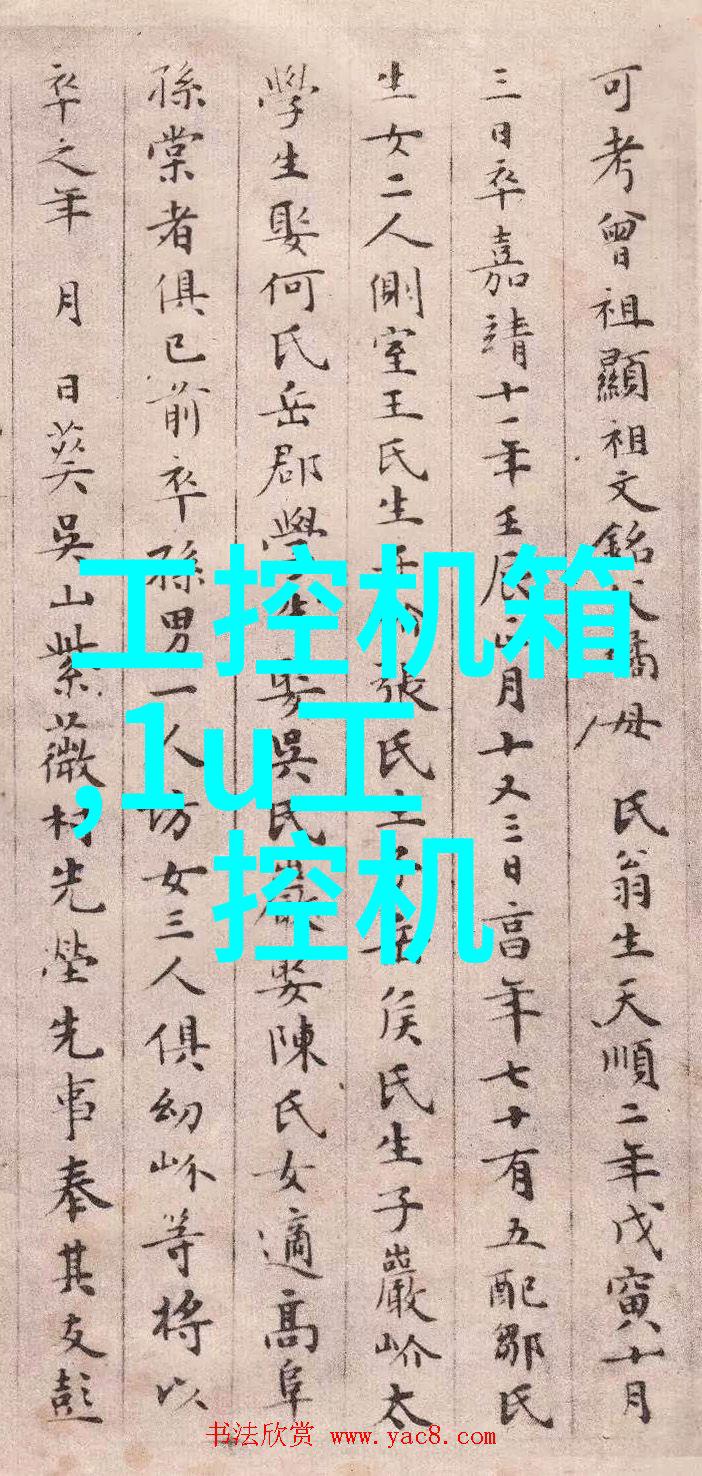 可考曾祖顯祖文銘父橘母 氏翁生天順二年戊寅十月
三日卒嘉靖十一年壬辰正月十又三日高年七十有五配鄒氏
生女二人側室王氏生子張氏生子岳侯氏生子巖岕太
學生娶何氏岳郡學生娶吳氏巖娶陳氏女適高阜
孫棠者俱已前卒孫男一人坊女三人俱幼岕等將以
卒之年 月 日葬吳山紫薇村先塋先事奉其友彭
工控机箱
,1u工
控机
书法欣赏 www.yac8.com